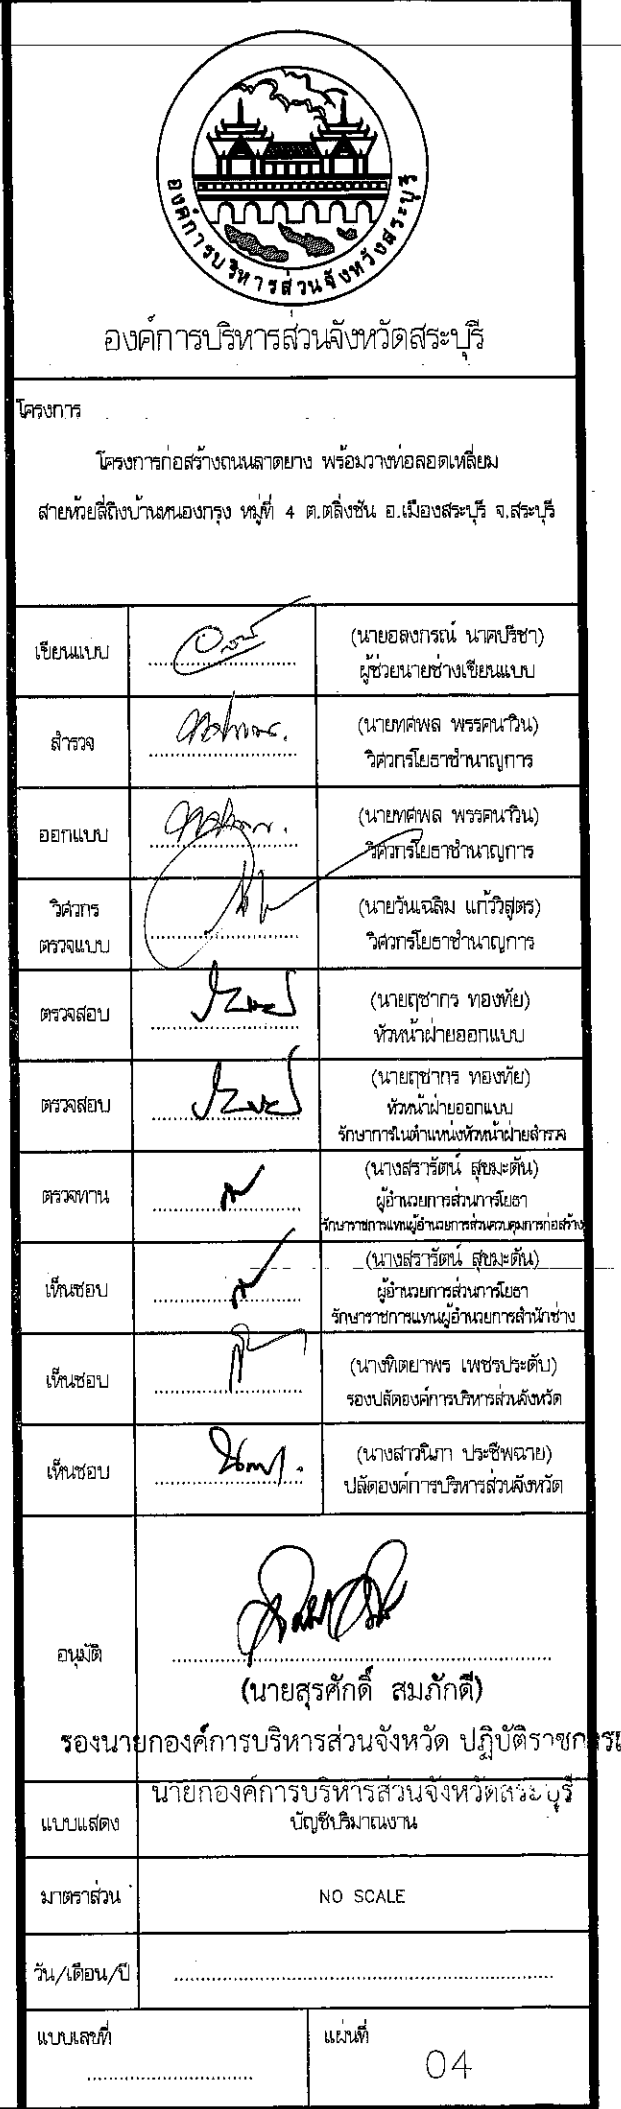 องค์การบริหารส่วนจังหวัดสระบุรี
องค์การบริหารส่วนจังหวัดสระบุรี
โครงการ
โครงการก่อสร้างถนนลาดยาง พร้อมวางท่อลอดเหลี่ยม
สายห้วยลี่ถึงบ้านหนองกรุง หมู่ที่ 4 ต.ตลิ่งชัน อ.เมืองสระบุรี จ.สระบุรี
เขียนแบบ
(นายอลงกรณ์ นาคปรีชา)
ผู้ช่วยนายช่างเขียนแบบ
สำรวจ
(นายทศพล พรรคนาวิน)
วิศวกรโยธาชำนาญการ
ออกแบบ
(นายทศพล พรรคนาวิน)
วิศวกรโยธาชำนาญการ
วิศวกร
ตรวจแบบ
(นายวันเฉลิม แก้ววิสูตร)
วิศวกรโยธาชำนาญการ
ตรวจสอบ
(นายฤชากร ทองทัย)
หัวหน้าฝ่ายออกแบบ
ตรวจสอบ
(นายฤชากร ทองทัย)
หัวหน้าฝ่ายออกแบบ
รักษาการในตำแหน่งหัวหน้าฝ่ายสำรวจ
ตรวจทาน
(นางสรารัตน์ สุขมะดัน)
ผู้อำนวยการส่วนการโยธา
รักษาราชการแทนผู้อำนวยการส่วนควบคุมการก่อสร้าง
เห็นชอบ
(นางสรารัตน์ สุขมะดัน)
ผู้อำนวยการส่วนการโยธา
รักษาราชการแทนผู้อำนวยการสำนักช่าง
เห็นชอบ
(นางทิตยาพร เพชรประดับ)
รองปลัดองค์การบริหารส่วนจังหวัด
เห็นชอบ
(นางสาวนิภา ประชีพฉาย)
ปลัดองค์การบริหารส่วนจังหวัด
อนุมัติ
(นายสุรศักดิ์ สมภักดี)
รองนายกองค์การบริหารส่วนจังหวัด ปฏิบัติราชการ
นายกองค์การบริหารส่วนจังหวัดสระบุรี
แบบแสดง
บัญชีปริมาณงาน
มาตราส่วน
NO SCALE
วัน/เดือน/ปี
แบบเลขที่
แผ่นที่
04